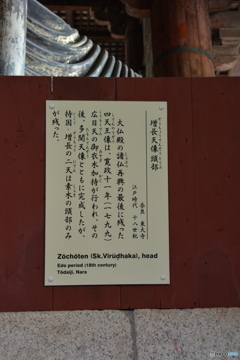 増長天像頭部
奈良 東大寺
江戸時代 十八世紀
大仏殿の諸仏再興の最後に残った
四天王像は、寛政十一年(一七九九)
広目天の御衣木加持が行われ、その
後、多聞天像とともに完成したが、
持国・増長の二天は幸木の頭部のみ
が残った。
Zōchōten (Sk.Virūḍhaka), head
Edo period (18th century)
Tōdaiji, Nara